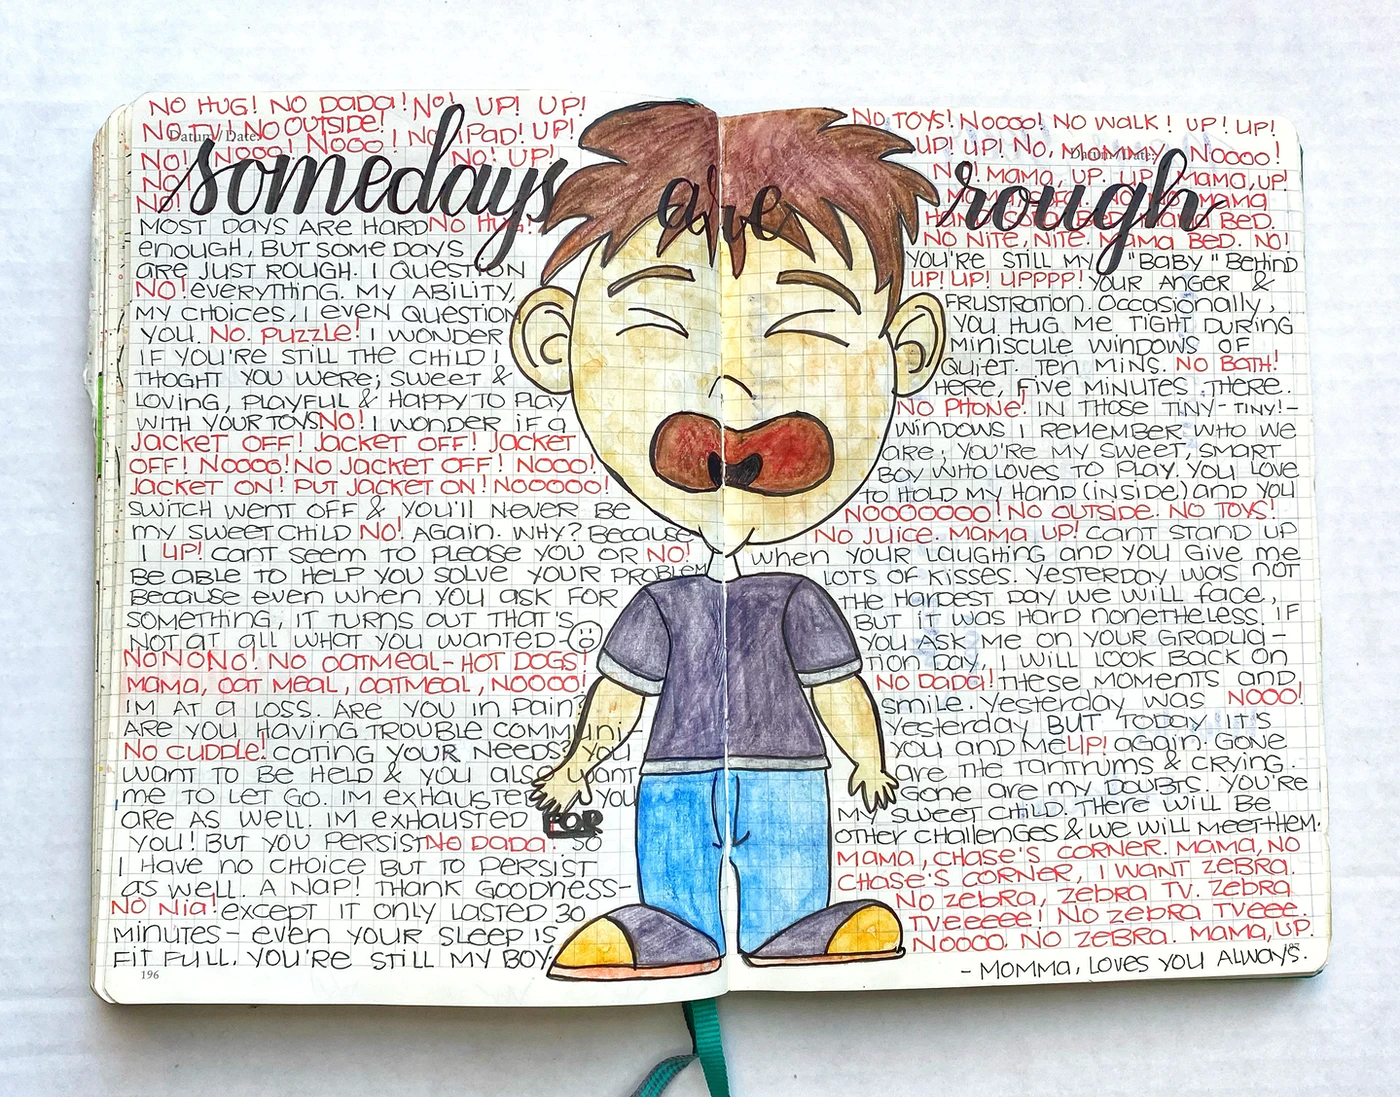 NO HUG! NO DADA! NO! UP! UP!
NO TV! NO OUTSIDE!
Datum / Date:
NO! NOOO! NOOO! NO IPAD! UP!
NO! UP!
NO!
NO!
somedays are rough
MOST DAYS ARE HARD NO HUG!
ENOUGH, BUT SOME DAYS
ARE JUST ROUGH. I QUESTION
NO! EVERYTHING. MY ABILITY,
MY CHOICES, I EVEN QUESTION
YOU. NO PUZZLE! I WONDER
IF YOU'RE STILL THE CHILD I
THOGHT YOU WERE; SWEET &
LOVING, PLAYFUL & HAPPY TO PLAY
WITH YOUR TOYS NO! I WONDER IF A
JACKET OFF! JACKET OFF! JACKET
OFF! NOOOO! NO JACKET OFF! NOOO!
JACKET ON! PUT JACKET ON! NOOOOO!
SWITCH WENT OFF & YOU'LL NEVER BE
MY SWEET CHILD NO! AGAIN. WHY? BECAUSE
I UP! CANT SEEM TO PLEASE YOU OR NO!
BE ABLE TO HELP YOU SOLVE YOUR PROBLEM
BECAUSE EVEN WHEN YOU ASK FOR
SOMETHING, IT TURNS OUT THAT'S
NOT AT ALL WHAT YOU WANTED-
NONONO! NO OATMEAL-HOT DOGS!
MAMA, OAT MEAL, OATMEAL, NOOOO!
IM AT A LOSS. ARE YOU IN PAIN?
ARE YOU HAVING TROUBLE COMMUNI-
NO CUDDLE! CATING YOUR NEEDS? YOU
WANT TO BE HELD & YOU ALSO WANT
ME TO LET GO. IM EXHAUSTED YOU
ARE AS WELL. IM EXHAUSTED FOR
YOU! BUT YOU PERSIST NO DADA! SO
I HAVE NO CHOICE BUT TO PERSIST
AS WELL. A NAP! THANK GOODNESS-
NO NIA! EXCEPT IT ONLY LASTED 30
MINUTES- EVEN YOUR SLEEP IS
FIT FULL. YOU'RE STILL MY BOY
196
NO TOYS! NOOOO! NO WALK! UP! UP!
UP! UP! NO, MOMMY, NOOOO!
NO! MAMA, UP. UP. MAMA, UP!
MAMA BED.
NO NITE, NITE. MAMA BED. NO!
YOU'RE STILL MY "BABY" BEHIND
UP! UP! UPPPP! YOUR ANGER &
FRUSTRATION. OCCASIONALLY,
YOU HUG ME TIGHT DURING
MINISCULE WINDOWS OF
QUIET. TEN MINS. NO BATH!
HERE, FIVE MINUTES THERE.
NO PHONE! IN THOSE TINY-TINY!-
WINDOWS I REMEMBER WHO WE
ARE; YOU'RE MY SWEET, SMART
BOY WHO LOVES TO PLAY. YOU LOVE
TO HOLD MY HAND (INSIDE) AND YOU
NOOOOOOO! NO OUTSIDE. NO TOYS!
NO JUICE. MAMA UP! CANT STAND UP
WHEN YOUR LAUGHING AND YOU GIVE ME
LOTS OF KISSES. YESTERDAY WAS NOT
THE HARDEST DAY WE WILL FACE,
BUT IT WAS HARD NONETHELESS. IF
YOU ASK ME ON YOUR GRADUA-
TION DAY, I WILL LOOK BACK ON
NO DADA! THESE MOMENTS AND
SMILE. YESTERDAY WAS NOOO!
YESTERDAY BUT TODAY IT'S
YOU AND ME UP! AGAIN. GONE
ARE THE TANTRUMS & CRYING.
GONE ARE MY DOUBTS. YOU'RE
MY SWEET CHILD. THERE WILL BE
OTHER CHALLENGES & WE WILL MEET THEM.
MAMA, CHASE'S CORNER. MAMA, NO
CHASE'S CORNER, I WANT ZEBRA.
NO ZEBRA, ZEBRA TV. ZEBRA
TVEEEEE! NO ZEBRA TVEEE.
NOOOO. NO ZEBRA. MAMA, UP.
- MOMMA, LOVES YOU ALWAYS.